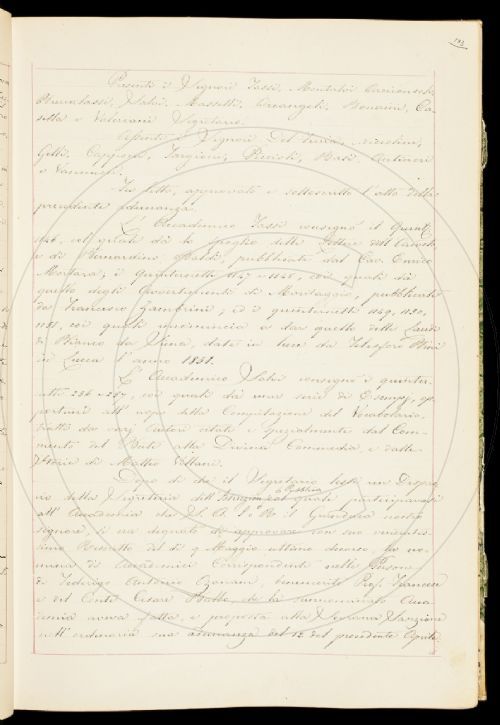 Presenti i Signori Tassi, Montalvi
Salvi, Massetti, Arcangeli, Bencini, Ca-
sella e Valeriani Segretario.
Assenti i Signori Del Furia, Niccolini,
Gelli, Capponi, Targioni, Rosini, Basi
e Vannucci.
Fu letto, approvato e sottoscritto l'atto della
precedente adunanza.
L'Accademico Tassi consegnò il Quint:
coi quali dà lo spoglio delle Lettere del
e di Bernardino Baldi, pubblicate dal Cav. Enrico
Montara; i Quinternetti 1147 e 1148, coi quali dà
quello degli Avvertimenti di Maritaggio, pubblicati
da Francesco Zambrini; ed i quinternetti 1149, 1150,
1151, coi quali incomincia a dar quello delle Laudi
di Bianco da Siena, date in luce da Telesforo Bini
in Lucca l'anno 1851.
L'Accademico Salvi consegnò i quinter-
netti 256 e 257, coi quali dà una serie di Esempj, op-
portuni all'uopo della Compilazione del Vocabolario,
tratti da varj autori citati e specialmente dal Com-
mento del Buti alla Divina Commedia e dalle
Storie di Matteo Villani.
Dopo di che il Segretario lesse un Dispac-
cio della Segreteria dell'Istruzione Pubblica col quale partecipavasi
all'Accademia che S. A. I. e R. il Granduca nostro
signore, si era degnato di approvare con suo venerati-
simo Rescritto del dì 9 Maggio ultimo decorso, la no-
mina di Accademici Corrispondenti nelle Persone
di Federigo Antonio Ozanam, benemerito Prof. Francese
e del Conte Cesare Balbo, che la rammentata Acca-
demia aveva fatta, e proposta alla Sovrana Sanzione
nell'ordinaria sua adunanza del 12 del precedente Aprile.